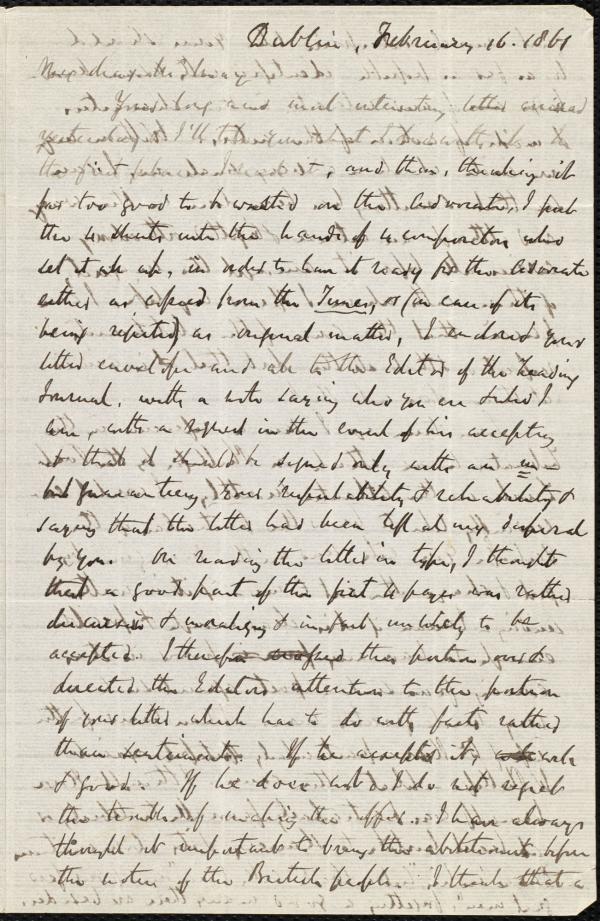 Dublin, February 16. 1861
My dear
Your long and interesting letter arrived
yesterday
the first place I it, and then, thinking it
far too good to be wasted on the Advocate, I put
the 4 sheets into the hands of 4 compositors who
set it all up, in order to have it ready for the Advocate
either as copied from the Times, or (in case of its
being rejected) as original matter, I enclosed your
letter envelope and all to the Editor of the Leading
Journal, with a note saying who you are & who I
am, with a request in the event of his accepting
it that it should be signed only with an m
but guaranteeing your respectability & reliability &
saying that the letter had been left at my disposal
by you. On reading the letter in type, I thought
that a good part of the first 4 pages was rather
discursive & moralizing & in fact unlikely to be
accepted I this portion over &
directed the Editor's attention to the portion
of your letter which has to do with facts rather
than sentiments. If he accepts it, well
& good. If he does not I do not regret
the trouble of making the offer. I have always
thought it important to bring the abolitionists before
the notice of the British people. I think that a